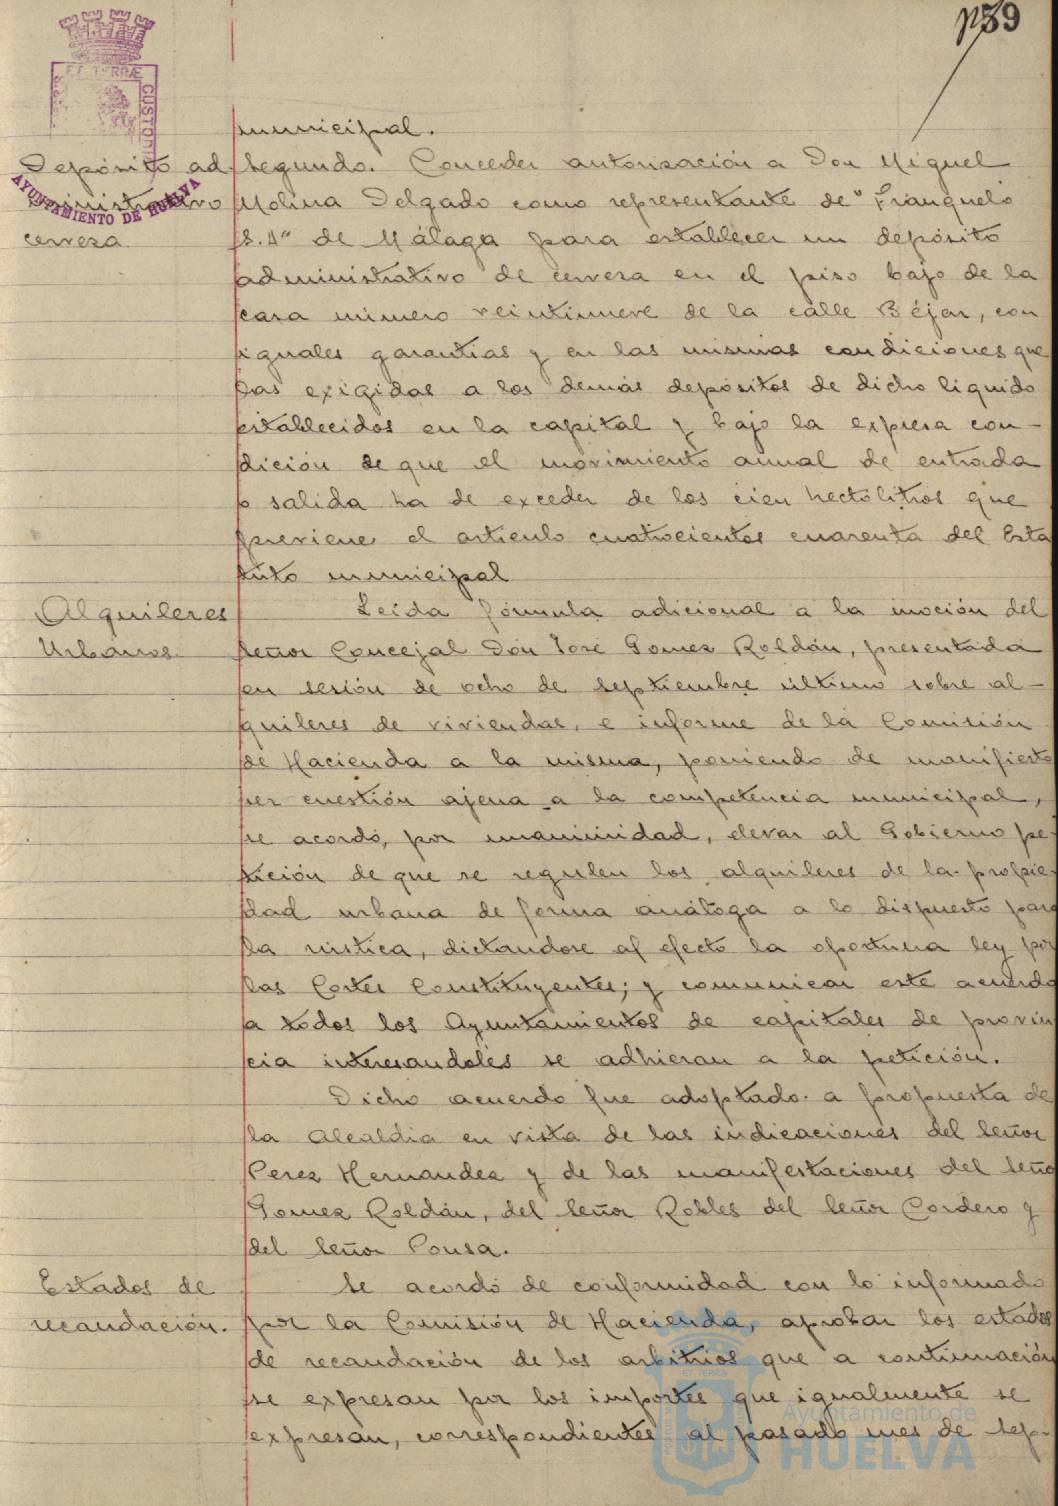 139
ET TERRÆ
CUSTODIA
AYUNTAMIENTO DE HUELVA
municipal.
Depósito ad
ministrativo
cerveza
Segundo. Conceder autorización a Don Miguel
Molina Delgado como representante de "Franquelo
S.A" de Málaga para establecer un depósito
administrativo de cerveza en el piso bajo de la
casa número veintinueve de la calle Béjar, con
iguales garantías y en las mismas condiciones que
las exigidas a los demás depósitos de dicho liquido
establecidos en la capital y bajo la expresa con-
dición de que el movimiento anual de entrada
o salida ha de exceder de los cien hectólitros que
previene el artículo cuatrocientos cuarenta del Esta
tuto municipal
Alquileres
Urbanos.
Leída fórmula adicional a la moción del
señor Concejal Don José Gomez Roldán, presentada
en sesión de ocho de Septiembre último sobre al-
quileres de viviendas, e informe de la Comisión
de Hacienda a la misma, poniendo de manifiesto
ser cuestión ajena a la competencia municipal,
se acordó, por unanimidad, elevar al Gobierno pe-
tición de que se regulen los alquileres de la propie-
dad urbana de forma análoga a lo dispuesto para
la rústica, dictandose al efecto la oportuna ley por
las Cortes Constituyentes; y comunicar este acuerdo
a todos los Ayuntamientos de capitales de provin
cia interesandoles se adhieran a la petición.
Dicho acuerdo fue adoptado a propuesta de
la Alcaldía en vista de las indicaciones del Señor
Perez Hernandez y de las manifestaciones del Seño
Gomez Roldán, del Señor Robles del Señor Cordero y
del Señor Pousa.
Estados de
recaudación.
Se acordó de conformidad con lo informado
por la Comisión de Hacienda, aprobar los estados
de recaudación de los arbitrios que a continuación
se expresan por los importes que igualmente se
expresan, correspondientes al pasado mes de Sep-
Ayuntamiento de
HUELVA